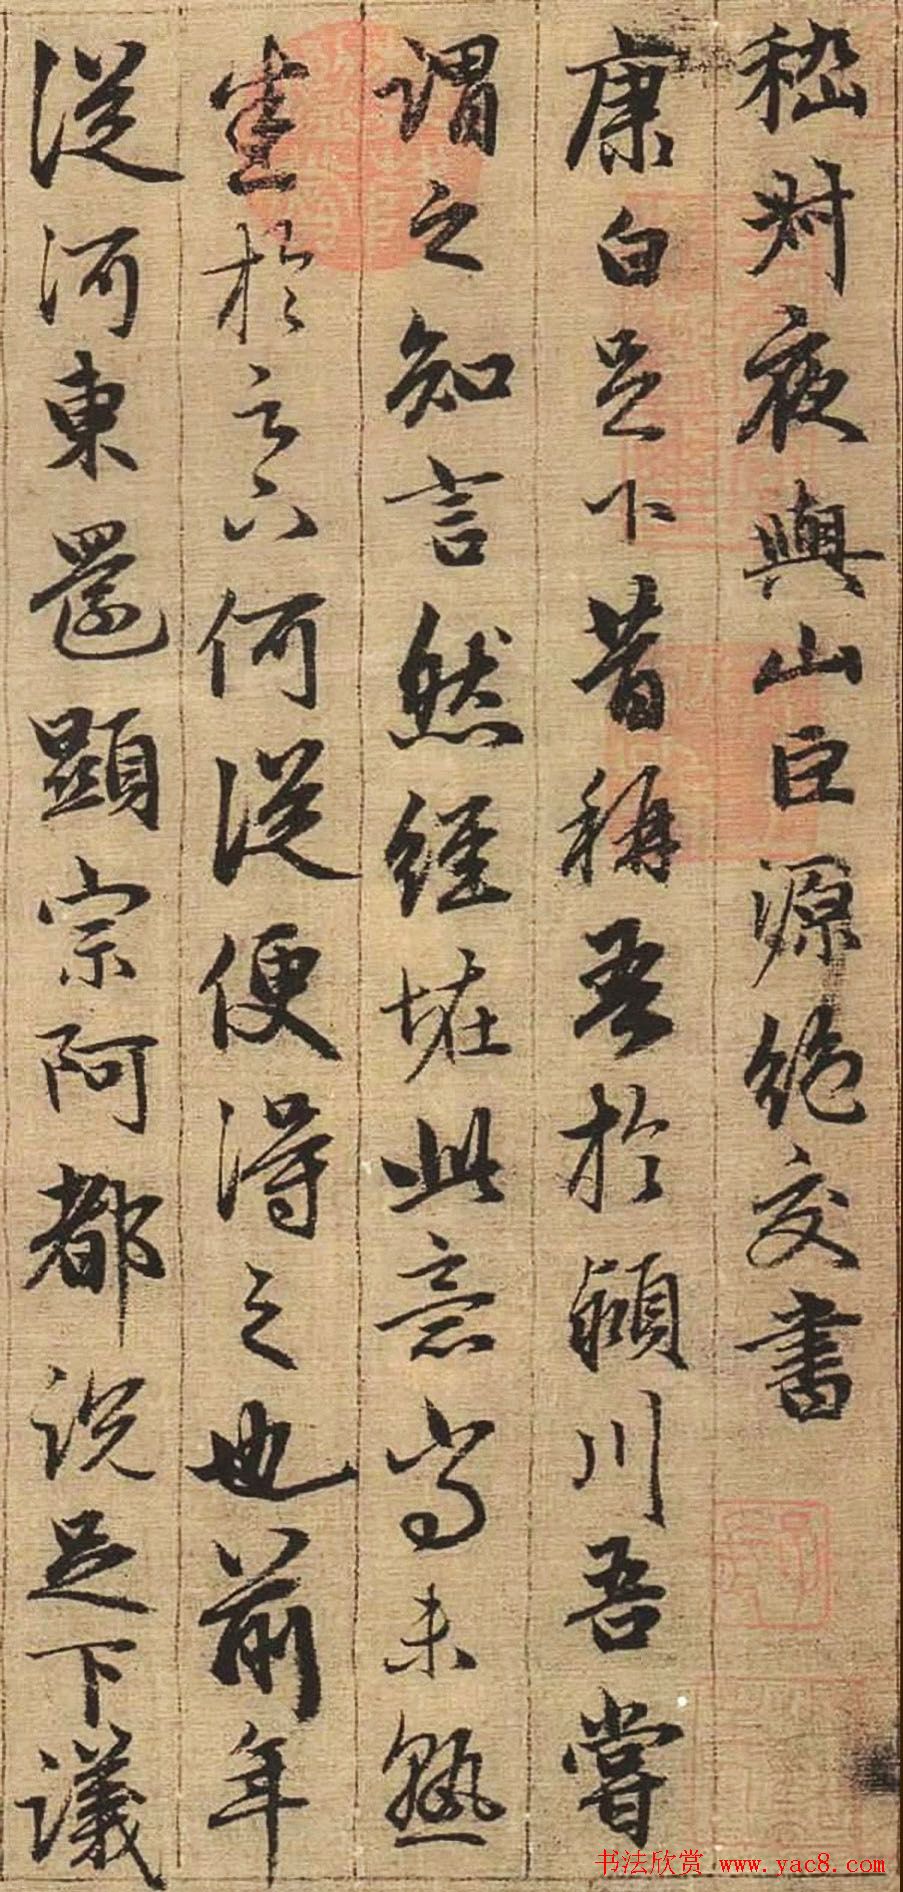 嵇叔夜與山巨源絶交書
康白足下昔稱吾於潁川吾嘗
謂之知言然經怪此意尚未熟
悉於足下何從便得之也前年
從河東還顯宗阿都說足下議
书法欣赏 www.yac8.com